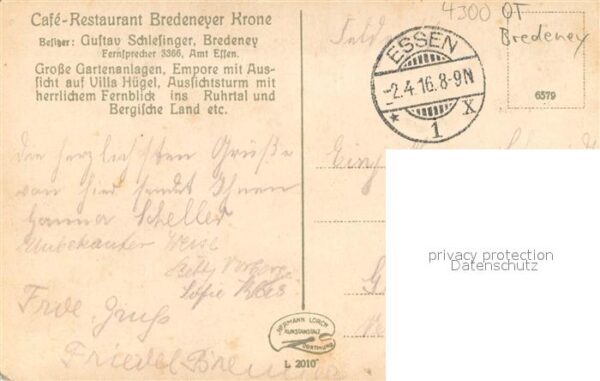 Café-Restaurant Bredeneyer Krone
Besitzer: Gustav Schlesinger, Bredeney
Fernsprecher 3366, Amt Essen.
Große Gartenanlagen, Empore mit Aus-
sicht auf Villa Hügel, Aussichtsturm mit
herrlichem Fernblick ins Ruhrtal und
Bergische Land etc.
Die herzlichsten Grüße
von hier sendet Ihnen
Hanna Scheller
Unbekannter Weise
Betty
Sofie
Frdl. Gruß
Friedel
HERMANN LORCH
KUNSTANSTALT
DORTMUND
L 2010
4300 OT
Bredeney
ESSEN
-2.4.16.8-9N
* 1 X
6579
privacy protection
Datenschutz